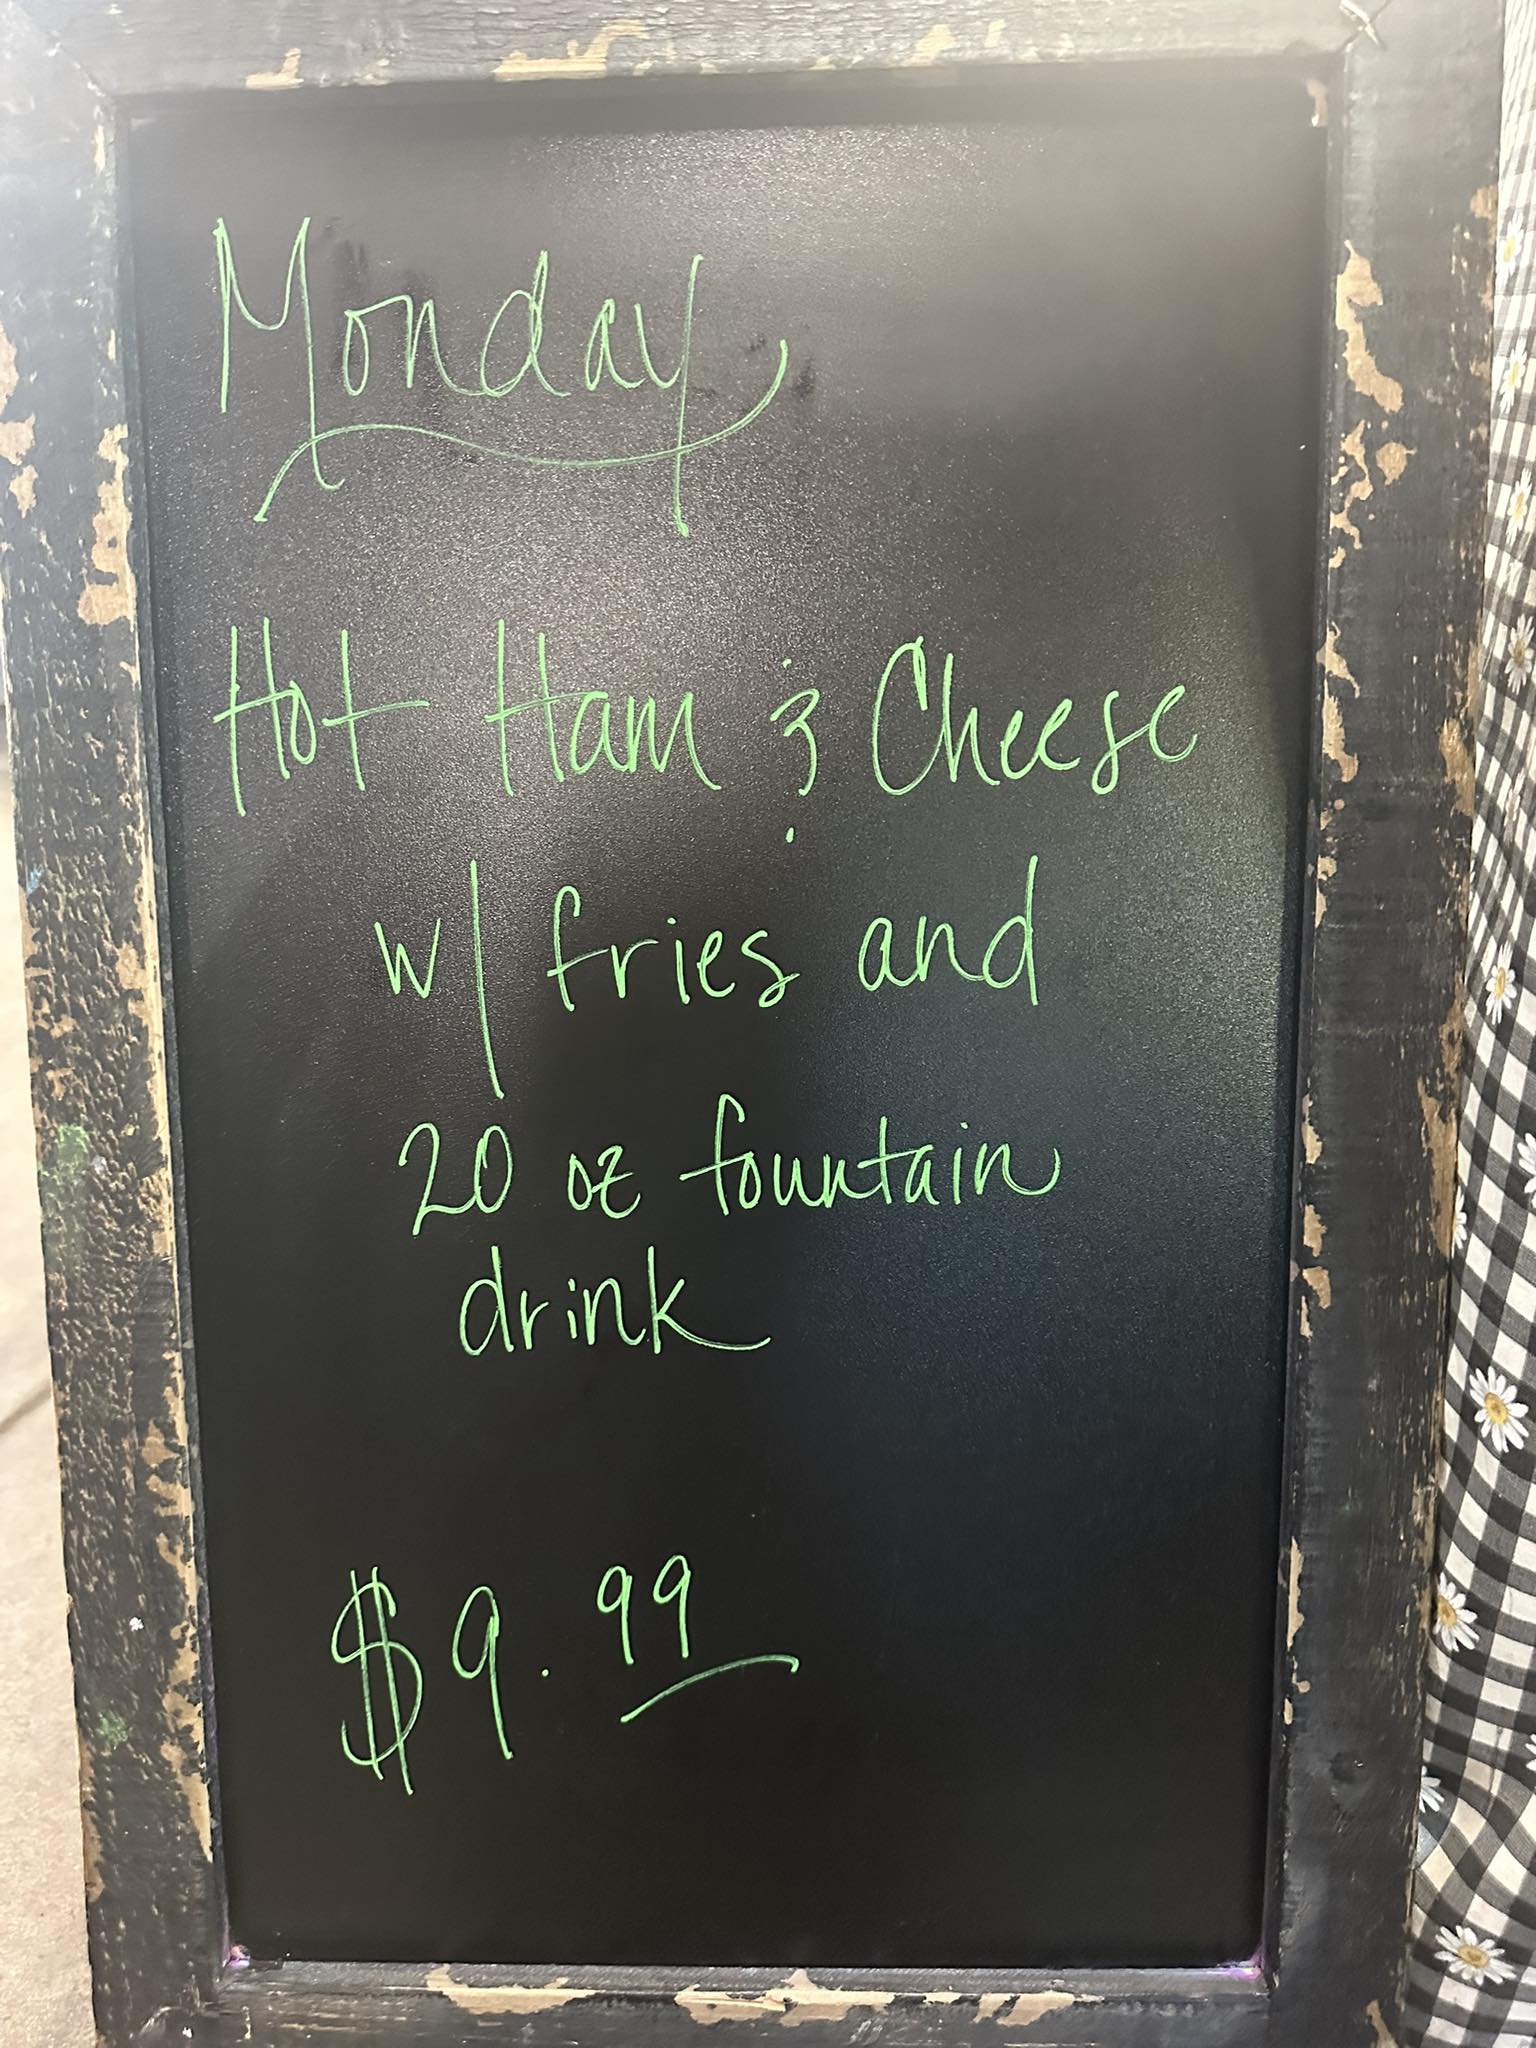 Monday
Hot Ham & Cheese
w/ fries and
20 oz fountain
drink
$9.99